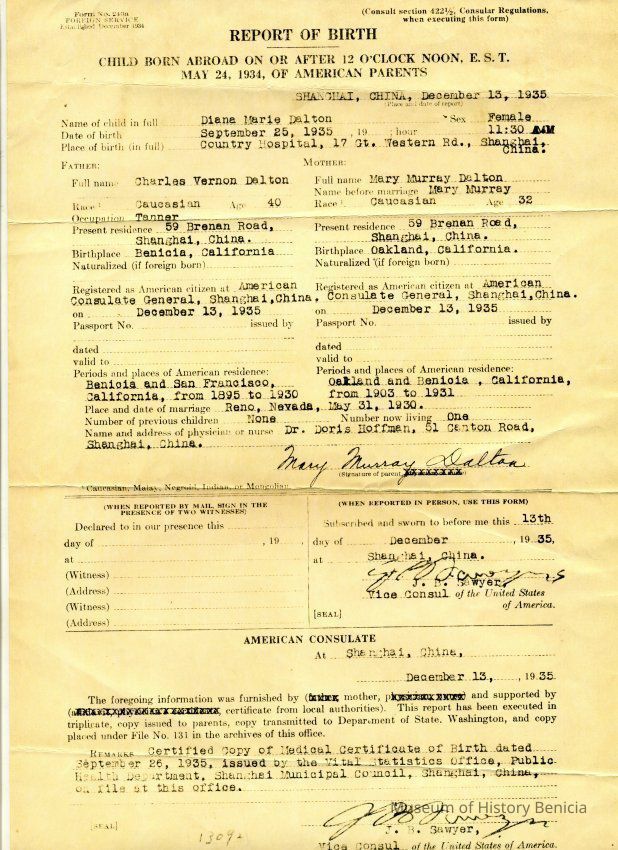 Form No. 240a
FOREIGN SERVICE
Established December 1934
(Consult section 422½, Consular Regulations,
when executing this form)
REPORT OF BIRTH
CHILD BORN ABROAD ON OR AFTER 12 O'CLOCK NOON, E. S. T.
MAY 24, 1934, OF AMERICAN PARENTS
SHANGHAI, CHINA, December 13, 1935
(Place and date of report)
Name of child in full Diana Marie Dalton Sex Female
Date of birth September 25, 1935 , 19 ; hour 11:30 AM
Place of birth (in full) Country Hospital, 17 Gt. Western Rd., Shanghai,
China.
FATHER: MOTHER:
Full name Charles Vernon Dalton Full name Mary Murray Dalton
Name before marriage Mary Murray
Race ¹ Caucasian Age 40 Race ¹ Caucasian Age 32
Occupation Tanner
Present residence 59 Brenan Road, Present residence 59 Brenan Road,
Shanghai, China. Shanghai, China.
Birthplace Benicia, California Birthplace Oakland, California.
Naturalized (if foreign born) Naturalized (if foreign born)
Registered as American citizen at American Registered as American citizen at American
Consulate General, Shanghai,China. Consulate General, Shanghai,China.
on December 13, 1935 on December 13, 1935
Passport No. issued by Passport No. issued by
dated dated
valid to valid to
Periods and places of American residence: Periods and places of American residence:
Benicia and San Francisco, Oakland and Benicia , California,
California, from 1895 to 1930 from 1903 to 1931
Place and date of marriage Reno, Nevada, May 31, 1930.
Number of previous children None Number now living One
Name and address of physician or nurse Dr. Doris Hoffman, 51 Canton Road,
Shanghai, China.
Mary Murray Dalton
(Signature of parent
¹ Caucasian, Malay, Negroid, Indian, or Mongolian.
(WHEN REPORTED BY MAIL, SIGN IN THE
PRESENCE OF TWO WITNESSES)
Declared to in our presence this , 19
day of
at
(Witness)
(Address)
(Witness)
(Address)
(WHEN REPORTED IN PERSON, USE THIS FORM)
Subscribed and sworn to before me this 13th
day of December , 19 35,
at Shanghai, China.
J. B. Sawyer
J. B. Sawyer,
Vice Consul of the United States
of America.
[SEAL]
AMERICAN CONSULATE
At Shanghai, China,
December 13, , 19 35.
The foregoing information was furnished by ( mother, ) and supported by
( certificate from local authorities). This report has been executed in
triplicate, copy issued to parents, copy transmitted to Department of State, Washington, and copy
placed under File No. 131 in the archives of this office.
REMARKS Certified Copy of Medical Certificate of Birth dated
September 26, 1935, issued by the Vital Statistics Office, Public
Health Department, Shanghai Municipal Council, Shanghai, China,
on file at this office.
J. B. Sawyer
Museum of History Benicia
[SEAL] J. B. Sawyer,
13092
Vice Consul of the United States of America.